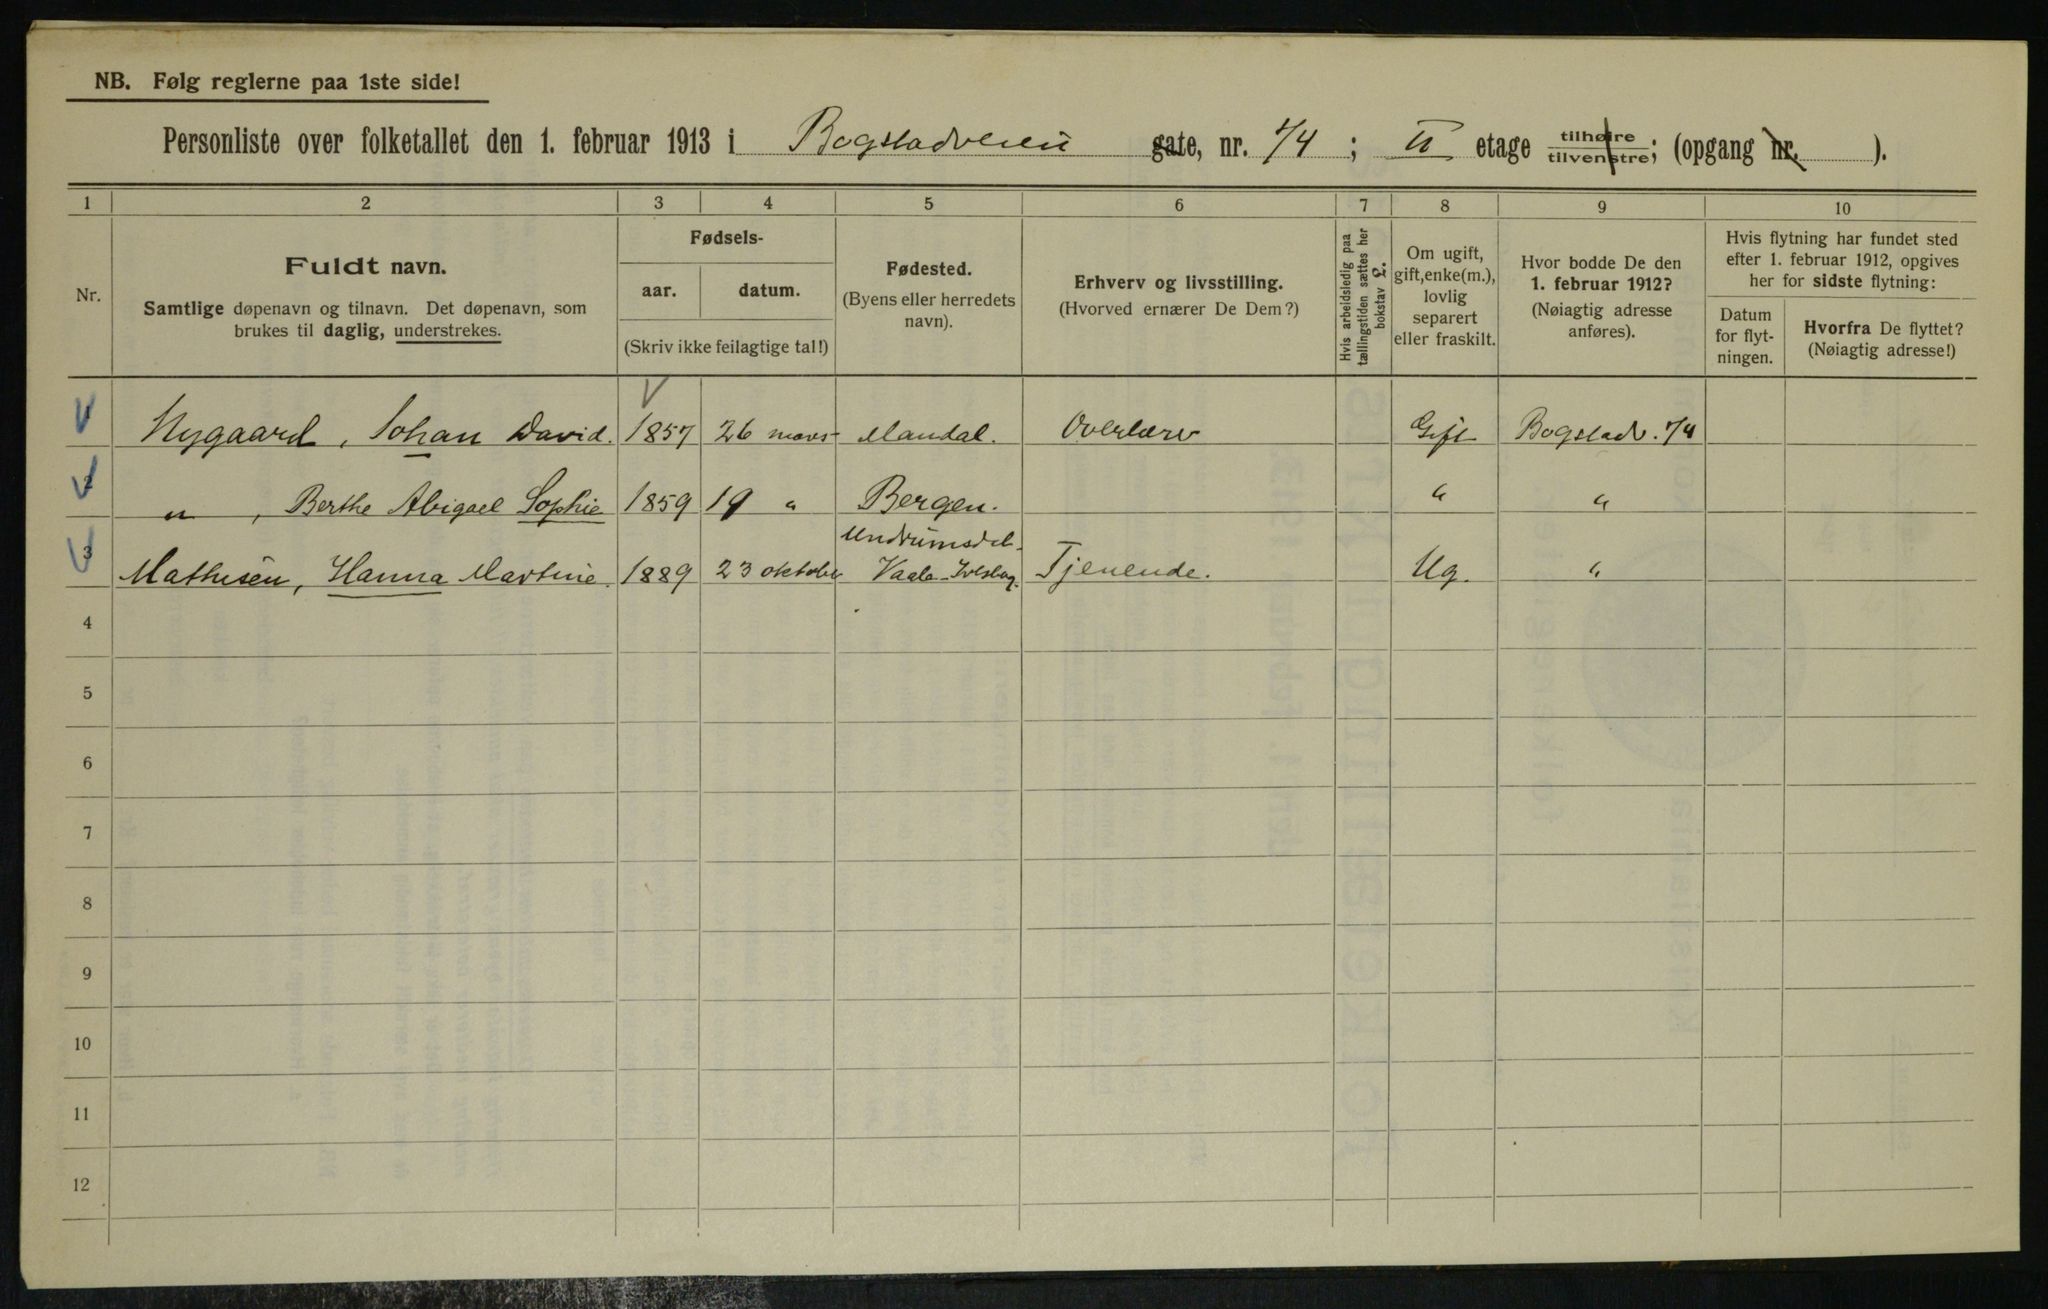 NB. Følg reglerne paa 1ste side!
Personliste over folketallet den 1. februar 1913 i Bogstadveien gate, nr. 74; II etage tilhøire tilvenstre; (opgang nr. ).
1 2 3 4 5 6 7 8 9 10
Nr.
Fuldt navn.
Samtlige døpenavn og tilnavn. Det døpenavn, som
brukes til daglig, understrekes.
Fødsels-
aar. datum.
(Skriv ikke feilagtige tal!)
Fødested.
(Byens eller herredets
navn).
Erhverv og livsstilling.
(Hvorved ernærer De Dem?)
Hvis arbeidsledig paa
tællingstiden sættes her
bokstav L.
Om ugift,
gift, enke(m.),
lovlig
separert
eller fraskilt.
Hvor bodde De den
1. februar 1912?
(Nøiagtig adresse
anføres).
Hvis flytning har fundet sted
efter 1. februar 1912, opgives
her for sidste flytning:
Datum
for flyt-
ningen.
Hvorfra De flyttet?
(Nøiagtig adresse!)
1 Nygaard, Johan David. 1857 26 mars Mandal. Overlærer Gift Bogstadv. 74
2 " , Berthe Abigael Sophie 1859 19 " Bergen. " "
Undrumsdal
3 Mathisen, Hanna Martine. 1889 23 oktober Vaale Tjenende. Ug. "
4
5
6
7
8
9
10
11
12